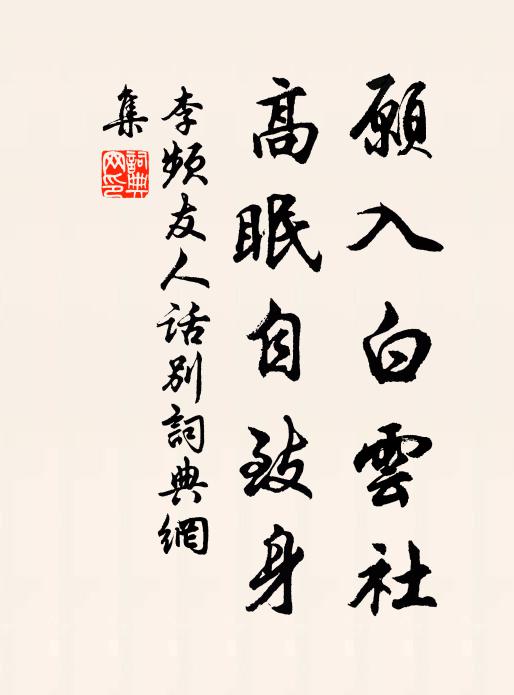 願入白雲社
高眠自致身
李頻友人話別詞典網
集
詞典
网印